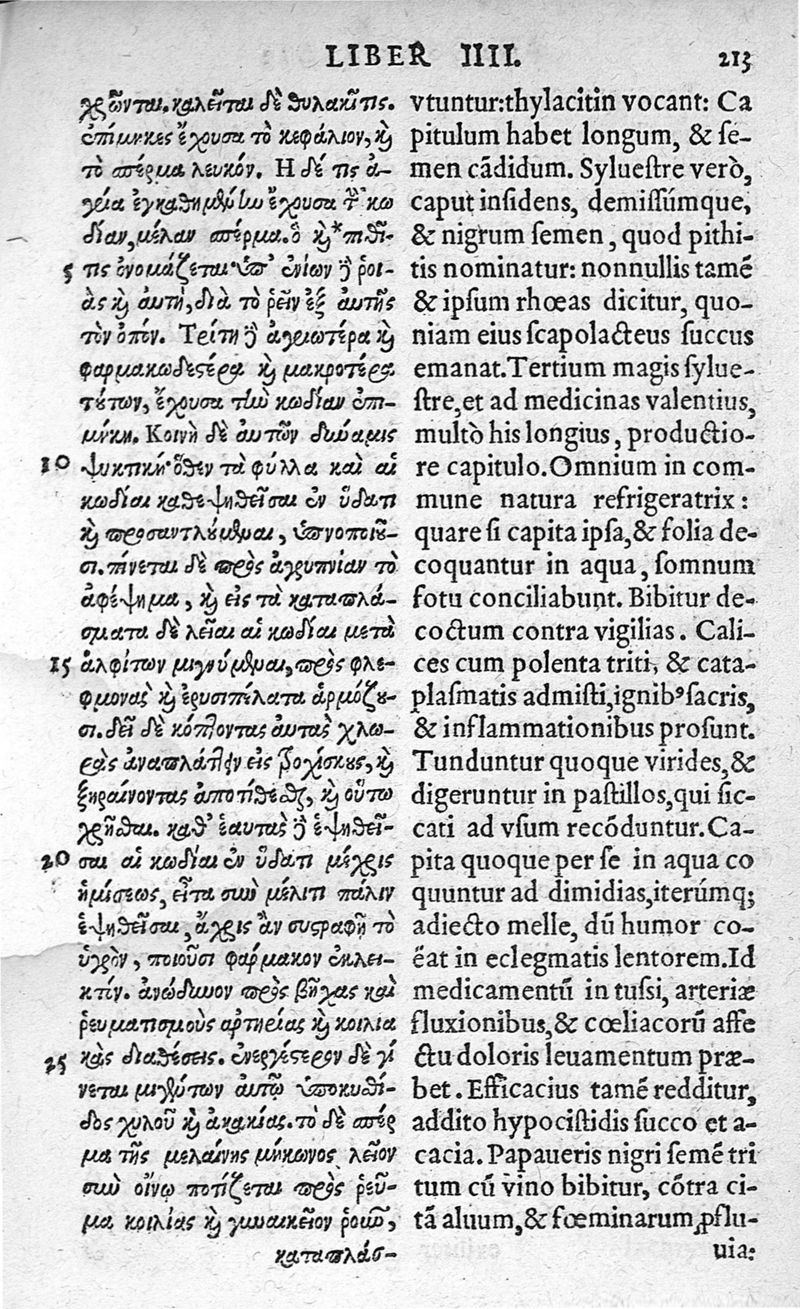 LIBER IIII. 213
χρῶνται. καλεῖται δὲ θυλακῖτις.
ἐπίμηκες ἔχουσα τὸ κεφάλιον, κὶ
τὸ σπέρμα λευκόν. Η δέ τις ἀ-
γρία ἐγκαθημένην ἔχουσα τὴν κω
δίαν, μέλαν σπέρμα. ὁ κὶ *πιθῖ-
5 τις ὀνομάζεται· ὑπ' ἐνίων δὲ ῥοι-
ὰς κὶ αὐτὴ, διὰ τὸ ῥεῖν ἐξ αὐτῆς
τὸν ὀπόν. Τρίτη δὲ ἀγριωτέρα κὶ
φαρμακωδεστέρα κὶ μακροτέρα
τούτων, ἔχουσα τὴν κωδίαν ἐπι-
μήκη. Κοινὴ δὲ αὐτῶν δύναμις
10 ψυκτική· ὅθεν τὰ φύλλα καὶ αἱ
κωδίαι καθεψηθεῖσαι ἐν ὕδατι
κὶ προσαντλούμεναι, ὑπνοποιοῦ-
σι. πίνεται δὲ πρὸς ἀγρυπνίαν τὸ
ἀφέψημα, κὶ εἰς τὰ καταπλά-
σματα δὲ λεῖαι αἱ κωδίαι μετὰ
15 ἀλφίτων μιγνύμεναι, πρὸς φλε-
φμονὰς κὶ ἐρυσιπέλατα ἁρμόζου-
σι. δεῖ δὲ κόπτοντας αὐτὰς χλω-
ρὰς ἀναπλάττειν εἰς τροχίσκους, κὶ
ξηραίνοντας ἀποτίθεσθαι, κὶ οὕτω
χρῆσθαι. καθ' ἑαυτὰς δὲ ἑψηθεῖ-
20 σαι αἱ κωδίαι ἐν ὕδατι μέχρις
ἡμίσεως, εἶτα σὺν μέλιτι πάλιν
ἑψηθεῖσαι, ἄχρις ἂν συστραφῇ τὸ
ὑγρὸν, ποιοῦσι φάρμακον ἐκλει-
κτὸν. ἀνώδυνον πρὸς βῆχας καὶ
ῥευματισμοὺς ἀρτηρίας κὶ κοιλια
25 κὰς διαθέσεις. ἐνεργέστερον δὲ γί
νεται μιγέντων αὐτῷ ὑποκυθί-
δος χυλοῦ κὶ ἀκακίας. τὸ δὲ σπέρ
μα τῆς μελαίνης μήκωνος λεῖον
σὺν οἴνῳ ποτίζεται πρὸς ῥεῦ-
μα κοιλίας κὶ γυναικεῖον ῥοῦν,
καταπλάσ-
vtuntur: thylacitin vocant: Ca
pitulum habet longum, & ſe-
men cādidum. Sylueſtre verò,
caput inſidens, demiſſúmque,
& nigrum ſemen, quod pithi-
tis nominatur: nonnullis tamē
& ipſum rhœas dicitur, quo-
niam eius ſcapo lacteus ſuccus
emanat. Tertium magis ſylue-
ſtre, et ad medicinas valentius,
multò his longius, productio-
re capitulo. Omnium in com-
mune natura refrigeratrix:
quare ſi capita ipſa, & folia de-
coquantur in aqua, ſomnum
fotu conciliabunt. Bibitur de-
coctum contra vigilias. Cali-
ces cum polenta triti, & cata-
plaſmatis admiſti, ignibꝰ ſacris,
& inflammationibus proſunt.
Tunduntur quoque virides, &
digeruntur in paſtillos, qui ſic-
cati ad vſum recōduntur. Ca-
pita quoque per ſe in aqua co
quuntur ad dimidias, iterúmq;
adiecto melle, dū humor co-
ēat in eclegmatis lentorem. Id
medicamentū in tuſsi, arteriæ
fluxionibus, & cœliacorū affe
ctu doloris leuamentum præ-
bet. Efficacius tamē redditur,
addito hypociſtidis ſucco et a-
cacia. Papaueris nigri ſemē tri
tum cū vino bibitur, cōtra ci-
tā aluum, & fœminarum ꝓflu-
uia: